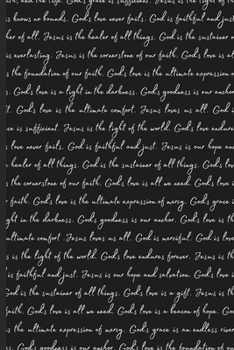 life. God's grace is sufficient. Jesus is the light of t
s knows no bounds. God's love never fails. God is faithful and just
her of all. Jesus is the healer of all things. God is the sustainer o
is everlasting. Jesus is the cornerstone of our faith. God's love is a
s the foundation of our faith. God's love is the ultimate expression o
s. God's love is a light in the darkness. God's goodness is our anchor
God's love is the ultimate comfort. Jesus loves us all. God i
ce is sufficient. Jesus is the light of the world. God's love endure
love never fails. God is faithful and just. Jesus is our hope an
healer of all things. God is the sustainer of all things. God's lov
s the cornerstone of our faith. God's love is all we need. God's love
r faith. God's love is the ultimate expression of mercy. God's grace i
ght in the darkness. God's goodness is our anchor. God's love is t
ultimate comfort. Jesus loves us all. God is merciful. God's love is
s is the light of the world. God's love endures forever. Jesus is th
is faithful and just. Jesus is our hope and salvation. God's love is
God is the sustainer of all things. God's love is a gift. Jesus is t
faith. God's love is all we need. God's love is a beacon of hope. Go
is the ultimate expression of mercy. God's grace is an endless river
God's goodness is our anchor. God's love is the foundation of ou